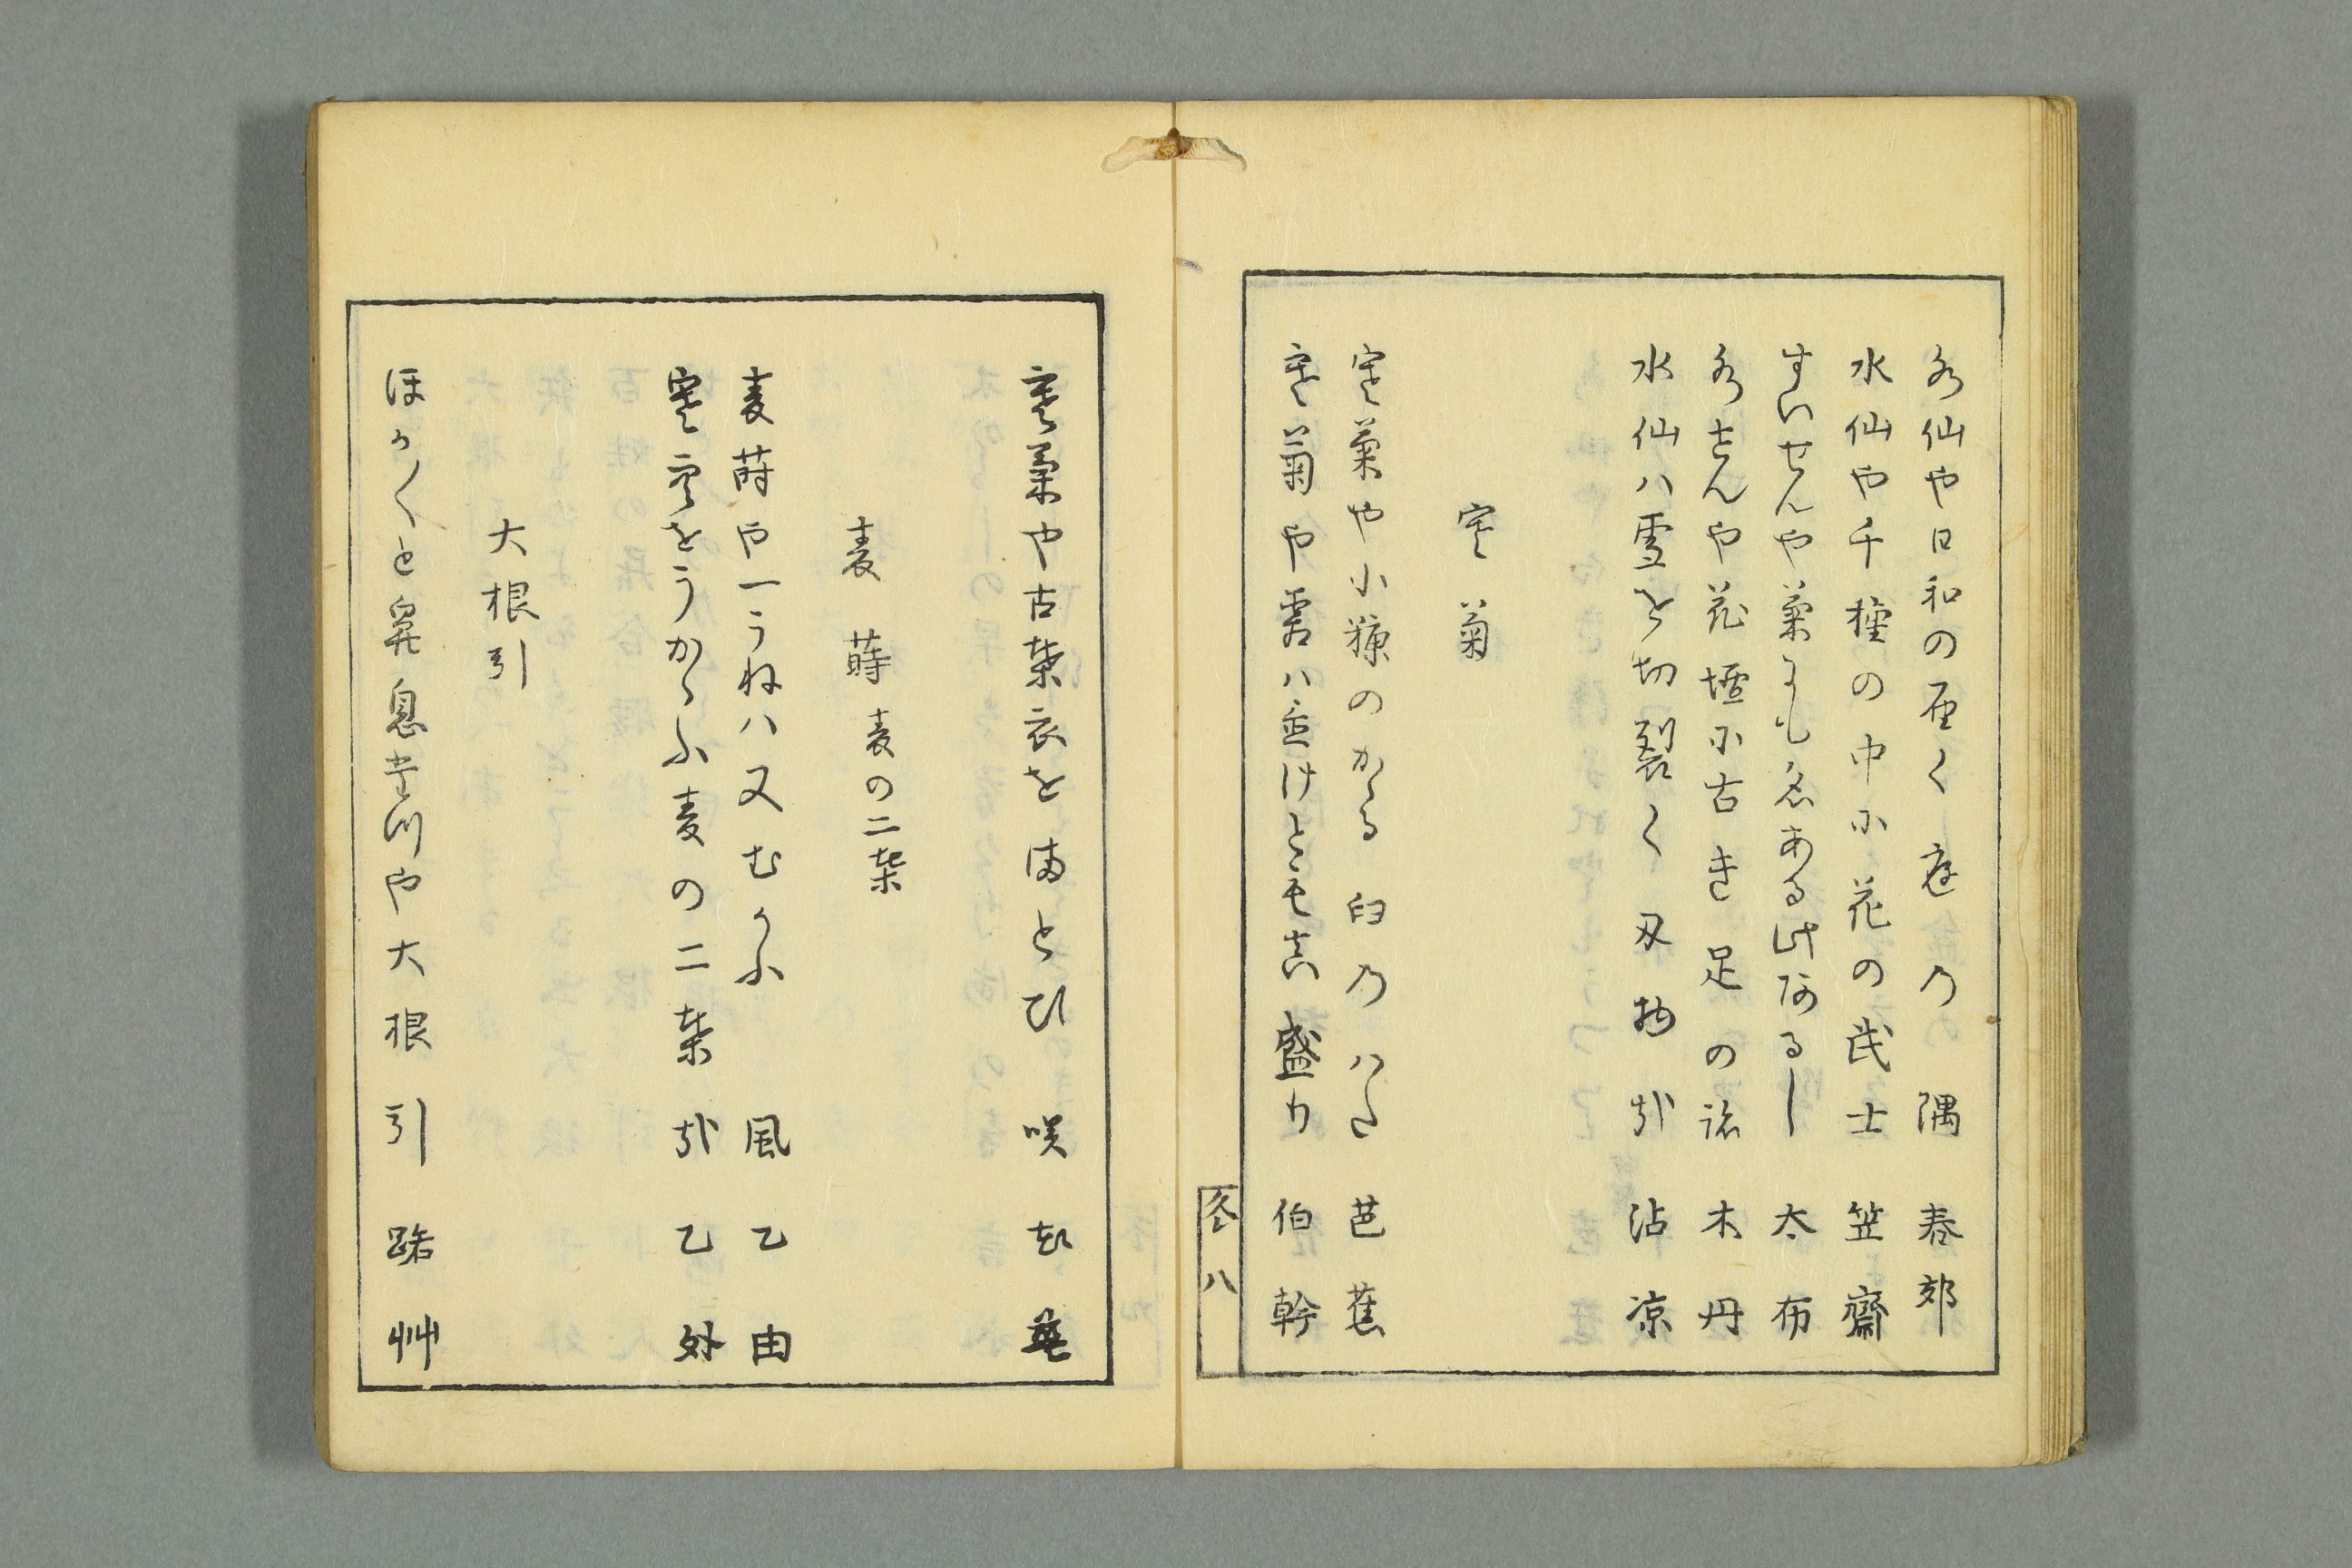 水仙や日和の届く庭の隅 春郊
水仙や千種の中に花の武士 笠齋
すいせんや葉にも名ある此あるし 太布
水せんや花壇に古き足の跡 木丹
水仙ハ雪を切裂く刃物哉 沾凉
寒菊
寒菊や小糠のかゝる臼のはた 芭蕉
寒菊や霜ハ置けとも真盛り 伯幹
冬 八
寒菊や古葉衣をまとひ咲
麦蒔 麦の二葉
麦蒔や一うねハ又むかふ風 乙由
寒空をうかゝふ麦の二葉哉 乙外
大根引
ほか〱と鼻息立つや大根引 踞艸